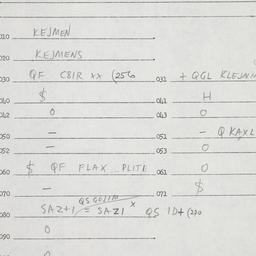 010 KEJMEN
020 KEJMENS
030 QF C8IR xx (256 031 + QGL KLEJMEN
040 $ 041 H
042 0 043 0
050 — 051 — Q KAXL
052 — 053 0
060 $ QF FLAX PLITE 061 0
070 — 071 $
080 SAZ+1 = SAZ1 x QS ID+ (230
090 0